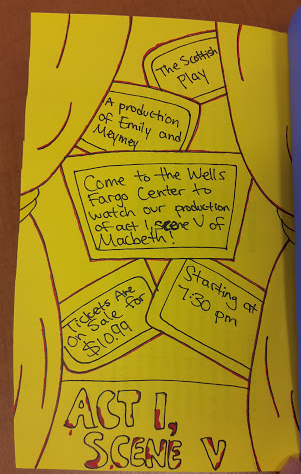 The Scottish
Play
A production
of Emily and
Meymey
Come to the Wells
Fargo Center to
watch our production
of act 1, scene V of
Macbeth!
Tickets Are
On Sale for
$10.99
Starting at
7:30 pm
ACT 1,
SCENE V